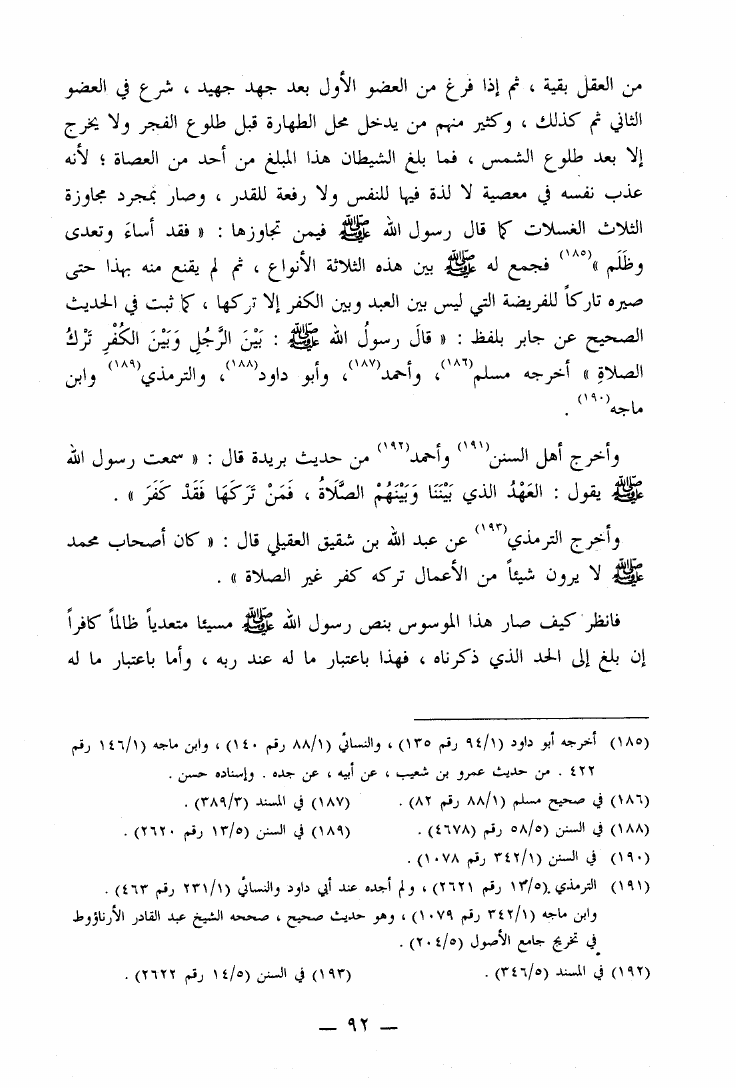 من العقل بقية ، ثم إذا فرغ من العضو الأول بعد جهد جهيد ، شرع في العضو
الثاني ثم كذلك ، وكثير منهم من يدخل محل الطهارة قبل طلوع الفجر ولا يخرج
إلا بعد طلوع الشمس ، فما بلغ الشيطان هذا المبلغ من أحد من العصاة ؛ لأنه
عذب نفسه في معصية لا لذة فيها للنفس ولا رفعة للقدر ، وصار بمجرد مجاوزة
الثلاث الغسلات كما قال رسول الله ﷺ فيمن تجاوزها : « فقد أساءَ وتعدى
وظَلَم »(١٨٥) فجمع له ﷺ بين هذه الثلاثة الأنواع ، ثم لم يقنع منه بهذا حتى
صيره تاركاً للفريضة التي ليس بين العبد وبين الكفر إلا تركها ، كما ثبت في الحديث
الصحيح عن جابر بلفظ : « قالَ رسولُ الله ﷺ : بَيْنَ الرَّجُلِ وَبَيْنَ الكُفْرِ تَرْكُ
الصلاةِ » أخرجه مسلم(١٨٦)، وأحمد(١٨٧)، وأبو داود(١٨٨)، والترمذي(١٨٩) وابن
ماجه(١٩٠) .
وأخرج أهل السنن(١٩١) وأحمد(١٩٢) من حديث بريدة قال : « سمعت رسول الله
ﷺ يقول : العَهْدُ الذي بَيْنَنَا وَبَيْنَهُمْ الصَّلَاةُ ، فَمَنْ تَرَكَهَا فَقَدْ كَفَرَ » .
وأخرج الترمذي(١٩٣) عن عبد الله بن شقيق العقيلي قال : « كان أصحاب محمد
ﷺ لا يرون شيئاً من الأعمال تركه كفر غير الصلاة » .
فانظر كيف صار هذا الموسوس بنص رسول الله ﷺ مسيئا متعدياً ظالماً كافراً
إن بلغ إلى الحد الذي ذكرناه ، فهذا باعتبار ما له عند ربه ، وأما باعتبار ما له
(١٨٥) أخرجه أبو داود (٩٤/١ رقم ١٣٥) ، والنسائي (٨٨/١ رقم ١٤٠) ، وابن ماجه (١٤٦/١ رقم
٤٢٢ . من حديث عمرو بن شعيب ، عن أبيه ، عن جده . وإسناده حسن .
(١٨٦) في صحيح مسلم (٨٨/١ رقم ٨٢) . (١٨٧) في المسند (٣٨٩/٣) .
(١٨٨) في السنن (٥٨/٥ رقم (٤٦٧٨) . (١٨٩) في السنن (١٣/٥ رقم ٢٦٢٠) .
(١٩٠) في السنن (٣٤٢/١ رقم ١٠٧٨) .
(١٩١) الترمذي (١٣/٥ رقم ٢٦٢١) ، ولم أجده عند أبي داود والنسائي (٢٣١/١ رقم ٤٦٣) .
وابن ماجه (٣٤٢/١ رقم ١٠٧٩) ، وهو حديث صحيح ، صححه الشيخ عبد القادر الأرناؤوط
في تخريج جامع الأصول (٢٠٤/٥) .
(١٩٢) في المسند (٣٤٦/٥) . (١٩٣) في السنن (١٤/٥ رقم ٢٦٢٢) .
— ٩٢ —